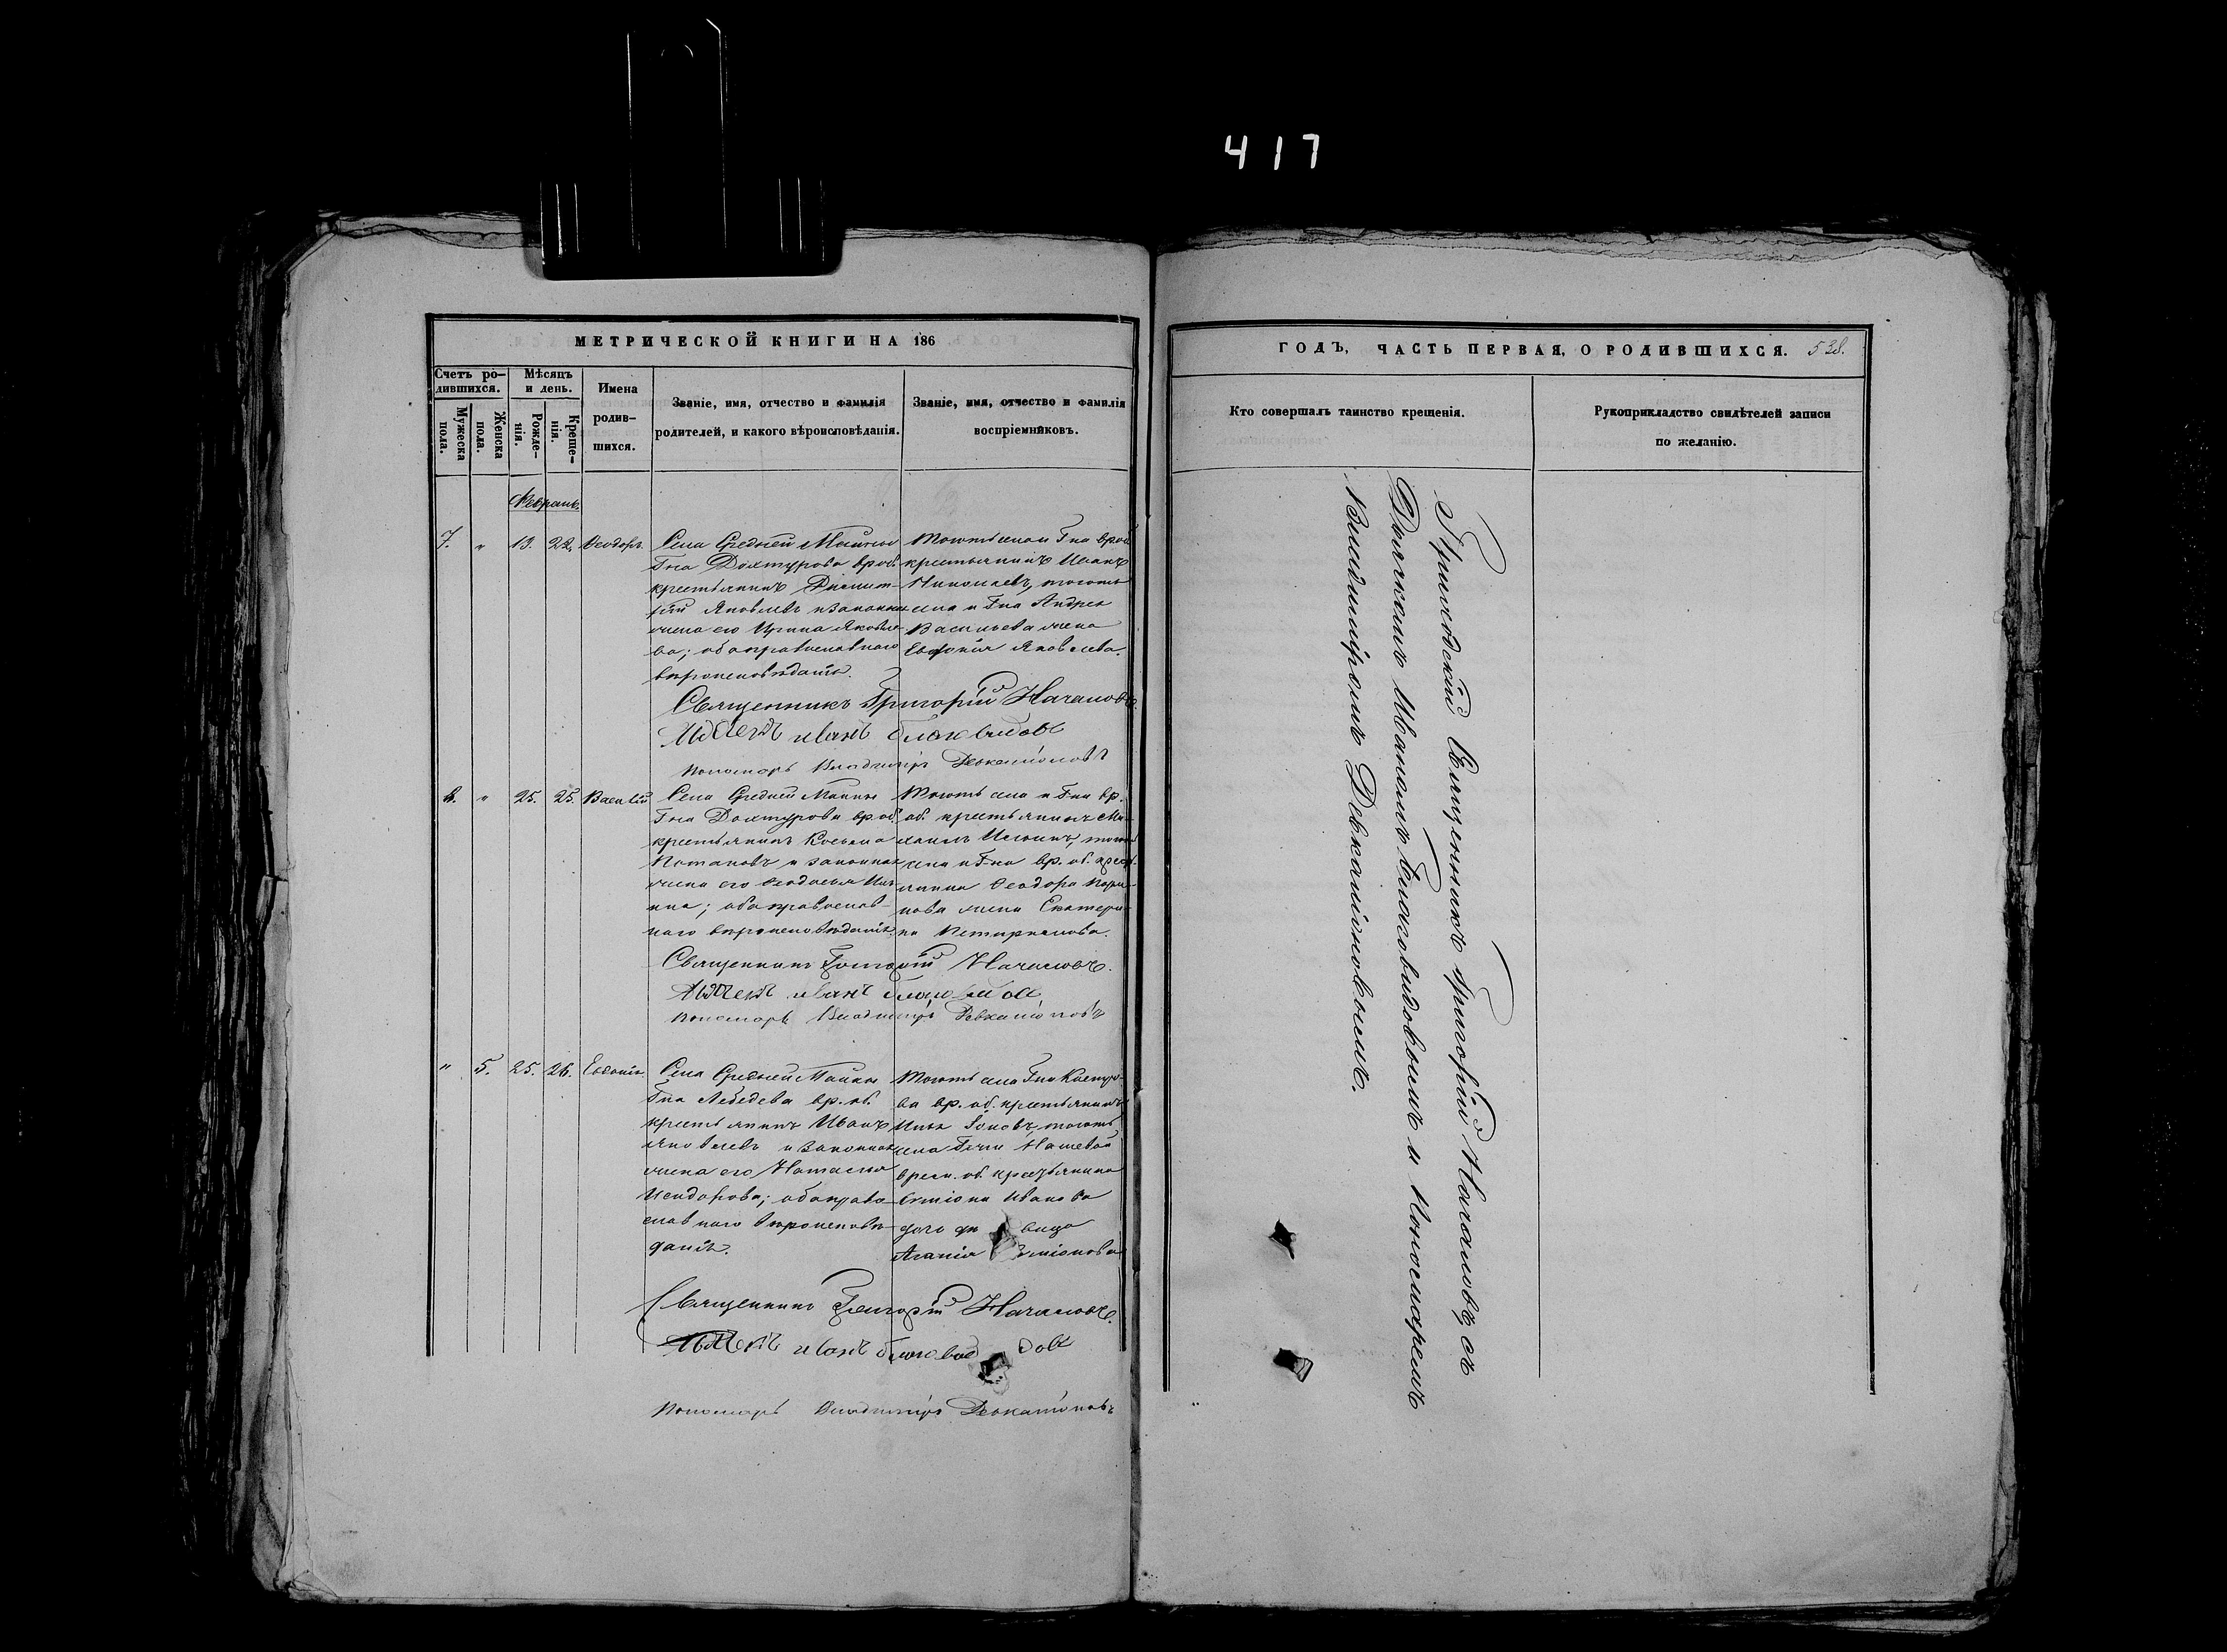 417
МЕТРИЧЕСКОЙ КНИГИ НА 186
Счетъ ро-
дившихся.
Мужеска
пола.
Женска
пола.
Мѣсяцъ
и день.
Рожде-
нія.
Креще-
нія.
Имена
родив-
шихся.
Званіе, имя, отчество и фамилія
родителей, и какого вѣроисповѣданія.
Званіе, имя, отчество и фамилія
воспріемниковъ.
Февраль.
7. " 13. 22. Ѳеодоръ
Села Средней Майны
Гна Дохтурова вр об.
крестьянинъ Димит-
рій Яковлевъ и законная
жена его Ирина Яковле-
ва; оба православнаго
вѣроисповѣданія.
Тогожъ села и Гна врем
крестьянинъ Иванъ
Николаевъ, тогожъ
села и Гна Андрея
Васильева жена
Евфимія Яковлева.
Священникъ Григорій Началовъ.
Дьячекъ Иванъ Благовидовъ
Пономарь Владиміръ Девкаліоновъ
8. " 25. 25. Василій
Села Средней Майны
Гна Дохтурова вр. об.
крестьянинъ Косьма
Потаповъ и законная
жена его Ѳеодосья Иль
ина; оба православ-
наго вѣроисповѣданія.
Тогожъ села и Гна вр.
об. крестьянинъ Ми-
хаилъ Ильинъ, тогожъ
села и Гна вр. об. крест.
янина Ѳеодора
жена Екатери-
на
Священникъ Григорій Началовъ.
Дьячекъ Иванъ Благовидовъ
Пономарь Владиміръ Девкаліоновъ
" 5. 25. 26. Евдокія
Села Средней Майны
Гна Лебедева вр. об.
крестьянинъ Иванъ
Яковлевъ и законная
жена его Наталья
Исидорова; оба право
славнаго вѣроисповѣ
данія.
Тогожъ села Гна
ва вр. об. крестьянинъ
Илья тогожъ
села Гжи
врем. об. крестьянина
Симіона Иванова
дочь дѣвица
Агапія Симіонова
Священникъ Григорій Началовъ.
Дьячекъ Иванъ Благовидовъ
Пономарь Владиміръ Девкаліоновъ
ГОДЪ, ЧАСТЬ ПЕРВАЯ, О РОДИВШИХСЯ. 538.
Кто совершалъ таинство крещенія.
Рукоприкладство свидѣтелей записи
по желанію.
Приходскій Священникъ Григорій Началовъ, съ
Дьячкомъ Иваномъ Благовидовымъ и Пономаремъ
Владиміромъ Девкаліоновымъ.